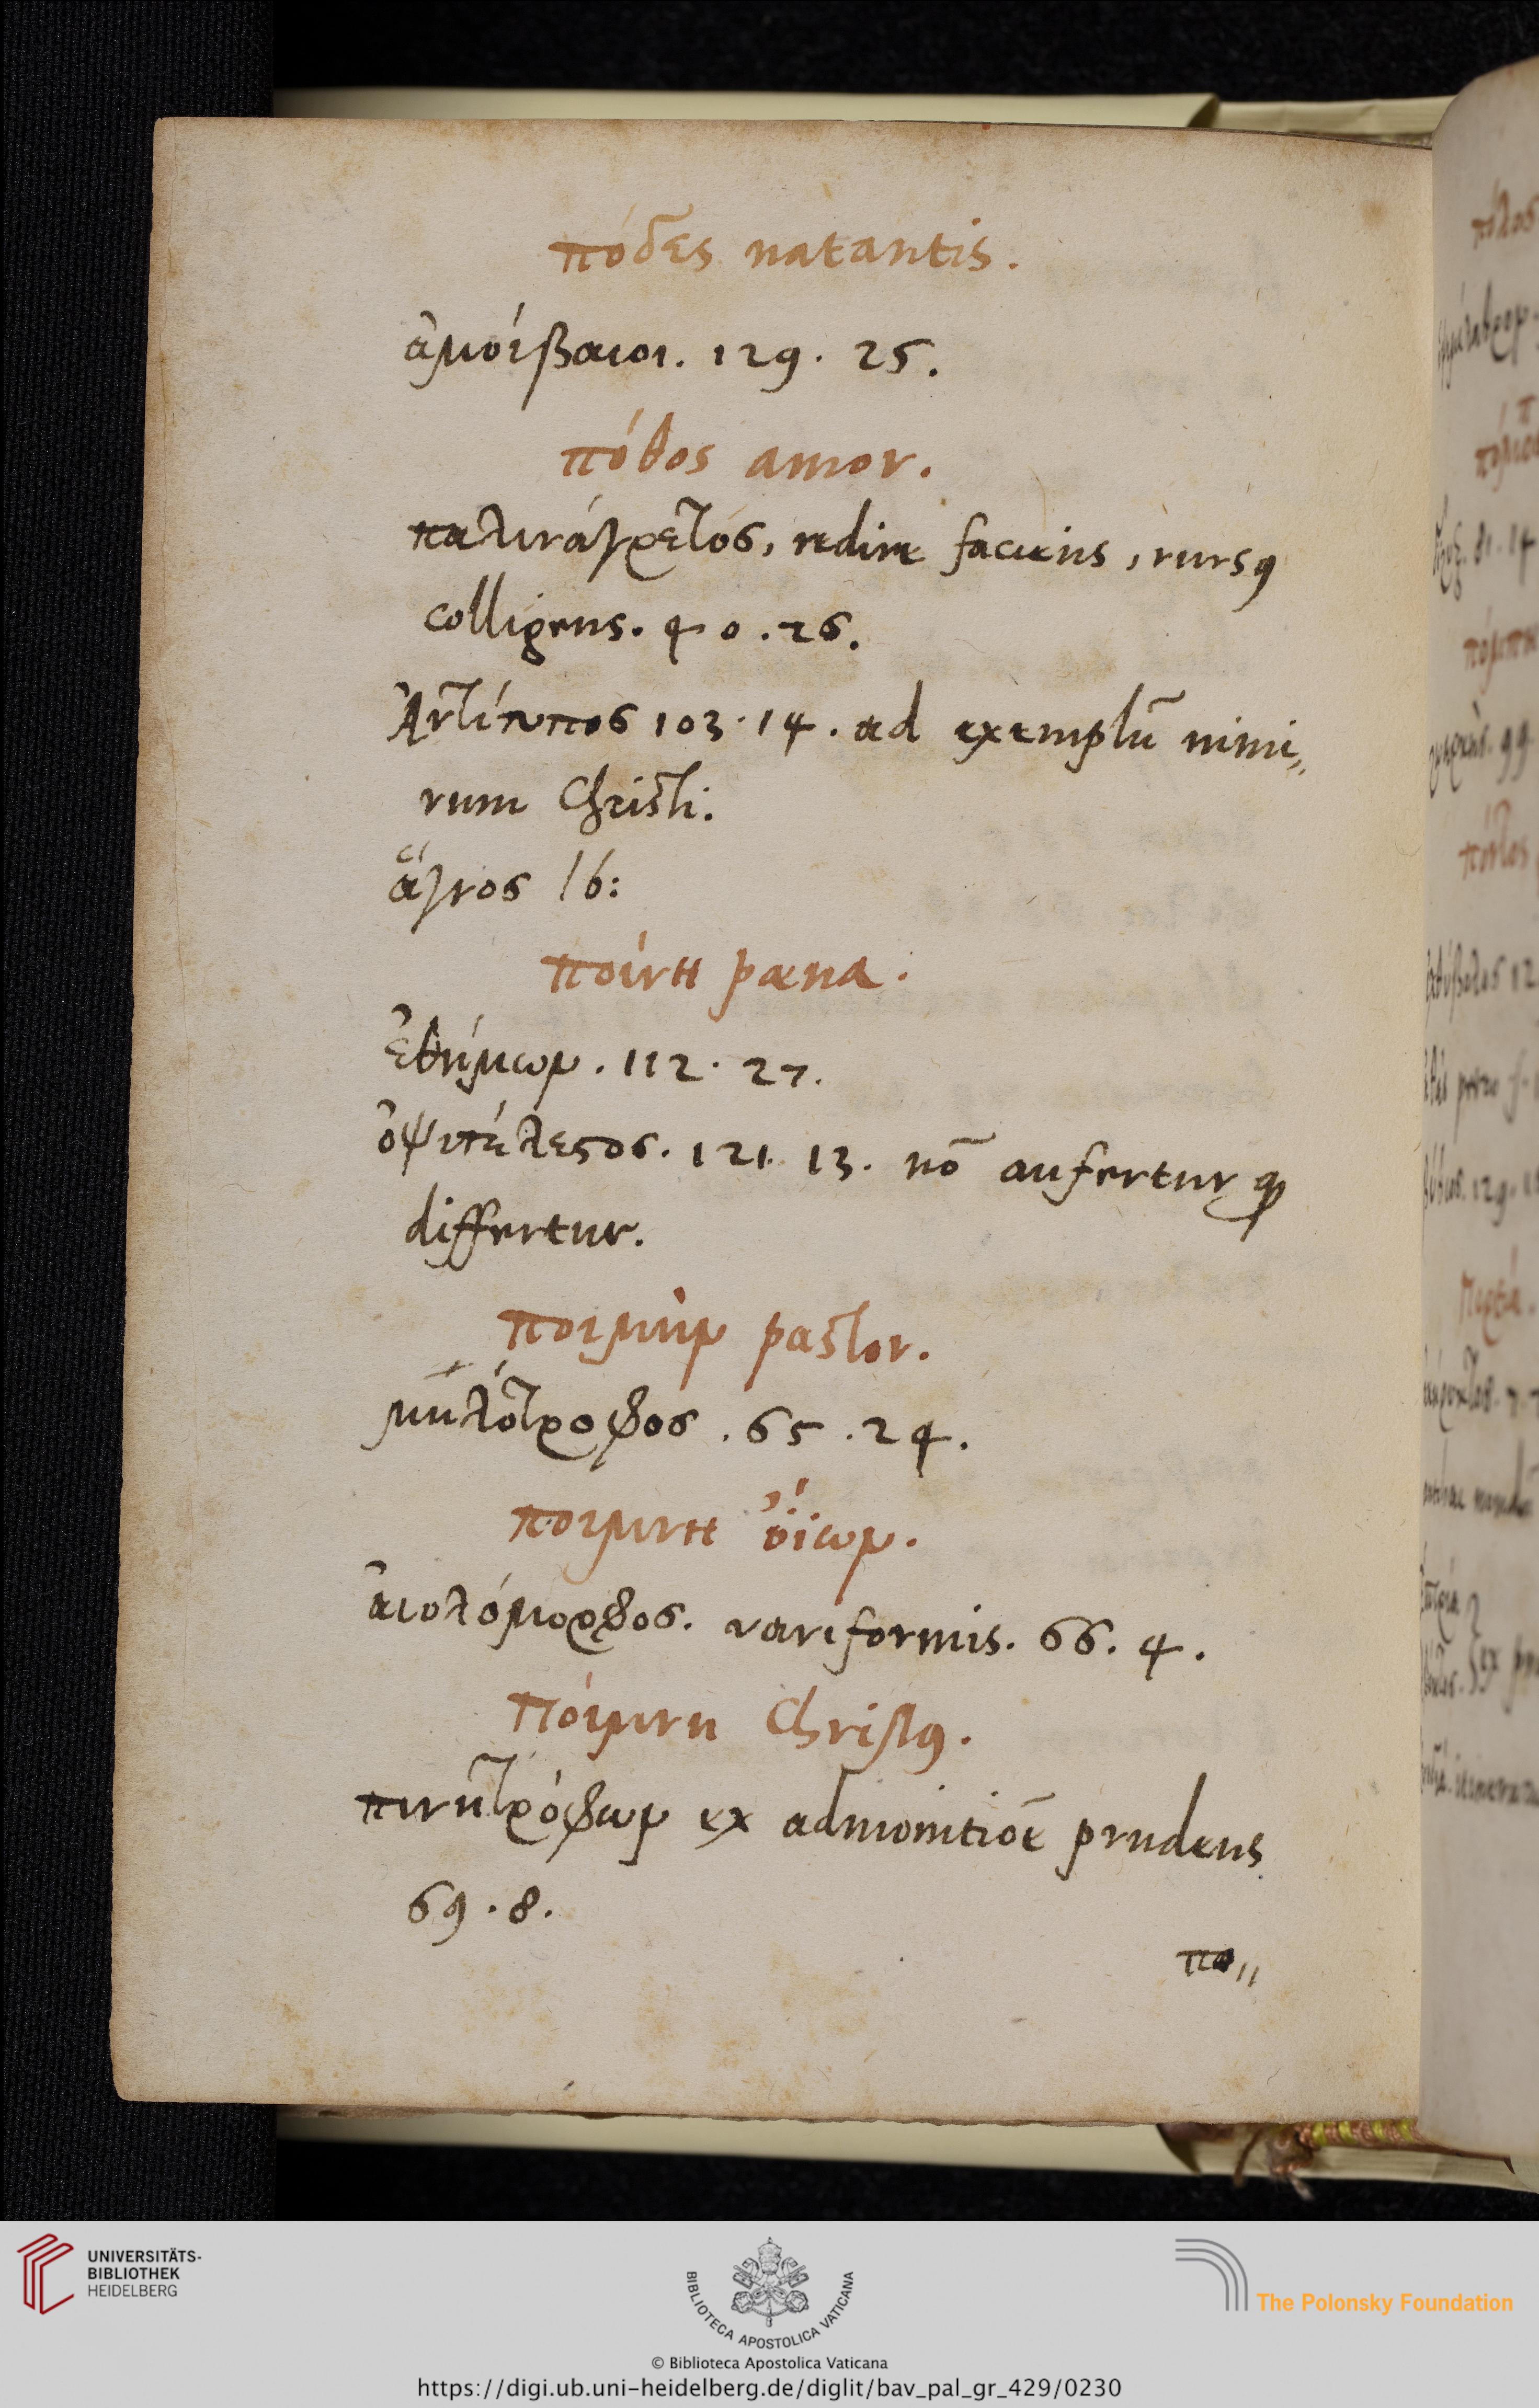 πόδες natantis.
ἀμοίβαιοι. 129. 25.
πόθος amor.
παλινάγρετος, redire faciens, rursꝯ
colligens. 40. 26.
Ἀντίτυπος 103. 14. ad exemplũ nimi„
rum Christi.
ἅγνος 16:
ποίνη pœna.
ἐθήμων. 112. 27.
ὀψιτέλεστος. 121. 13. nõ aufertur
differtur.
ποιμὴν pastor.
μηλότροφος. 65. 24.
ποίμνη ὄϊων.
ἀιολόμορφος. variformis. 66. 4.
Πόιμνη Christꝯ.
πινυτόφρων ex admonitiõe prudens
69. 8.
πο„
UNIVERSITÄTS-
BIBLIOTHEK
HEIDELBERG
BIBLIOTECA APOSTOLICA VATICANA
The Polonsky Foundation
© Biblioteca Apostolica Vaticana
https://digi.ub.uni-heidelberg.de/diglit/bav_pal_gr_429/0230